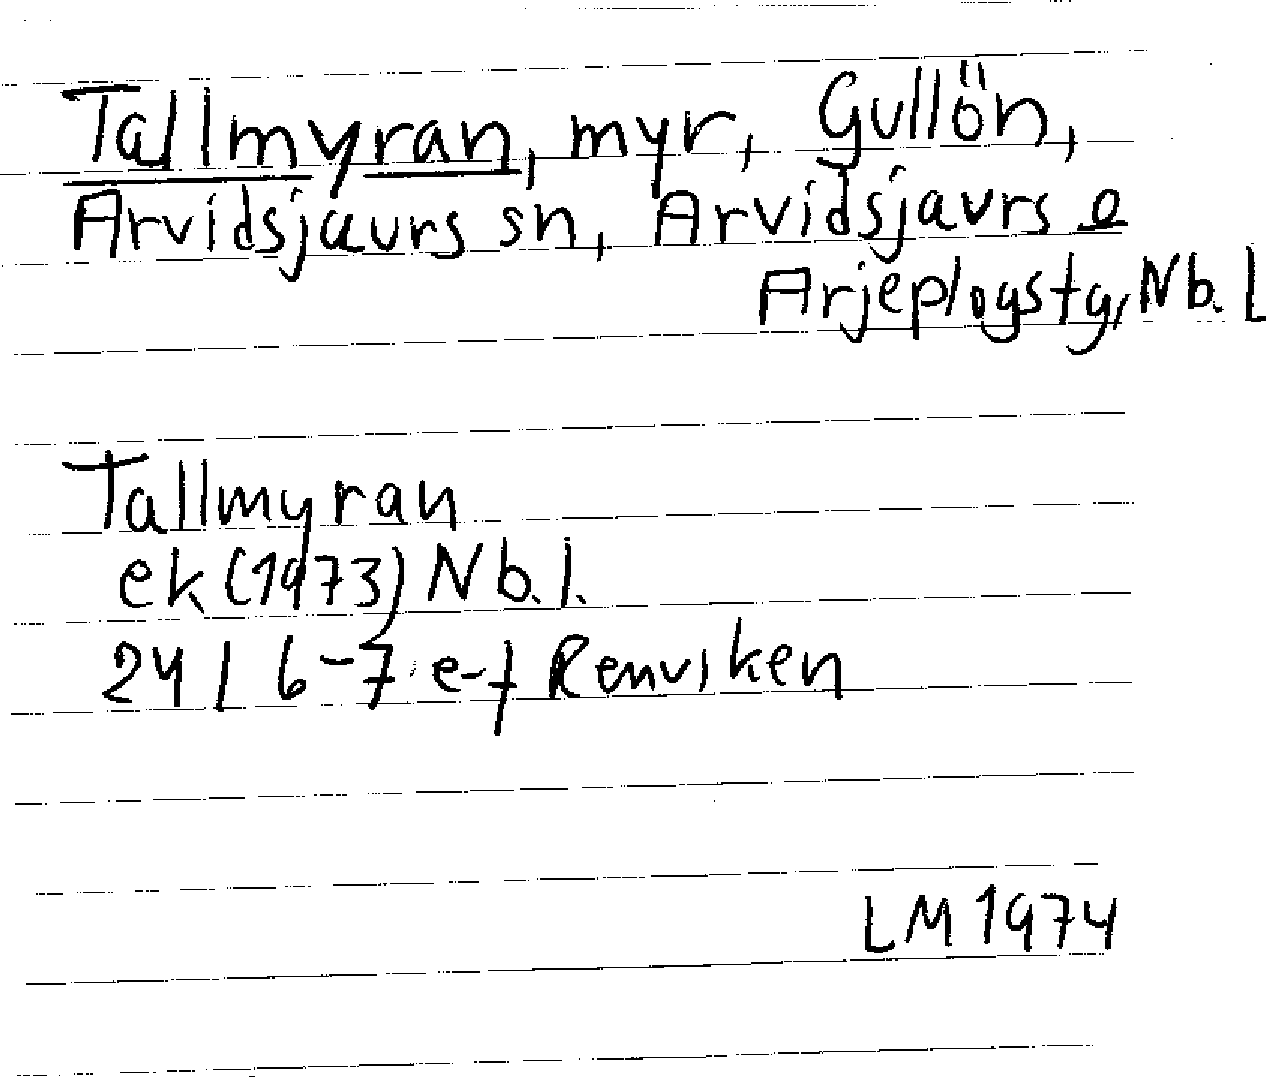 Tallmyran, myr, Gullön,
Arvidsjaurs sn, Arvidsjaurs o
Arjeplogs tg, Nb. l
Tallmyran
ek (1973) Nb. l.
24 I 6-7 e-f Renviken
LM 1974